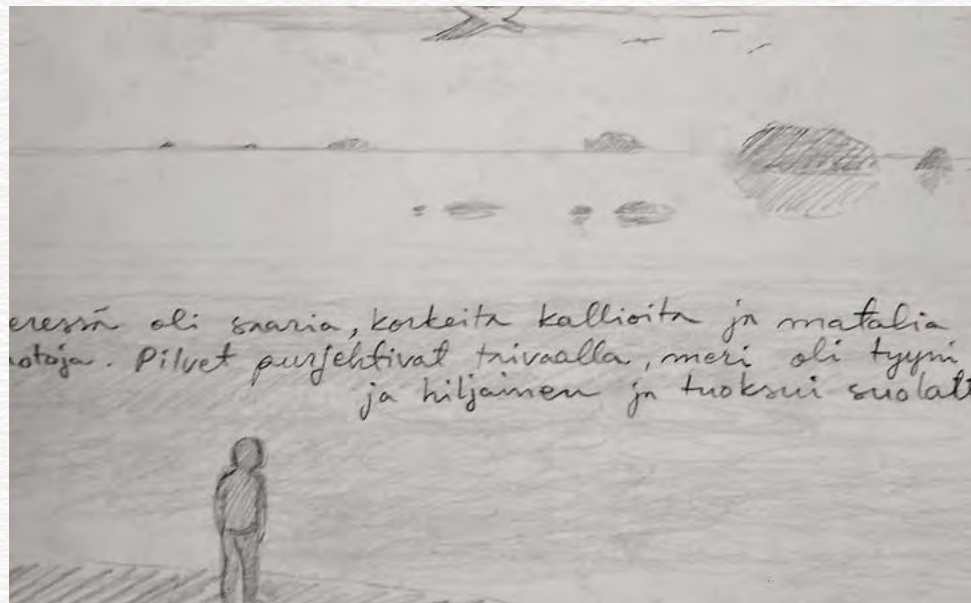 eressä oli saaria, korkeita kallioita ja matalia
otoja. Pilvet purjehtivat taivaalla, meri oli tyyni
ja hiljainen ja tuoksui suolalt